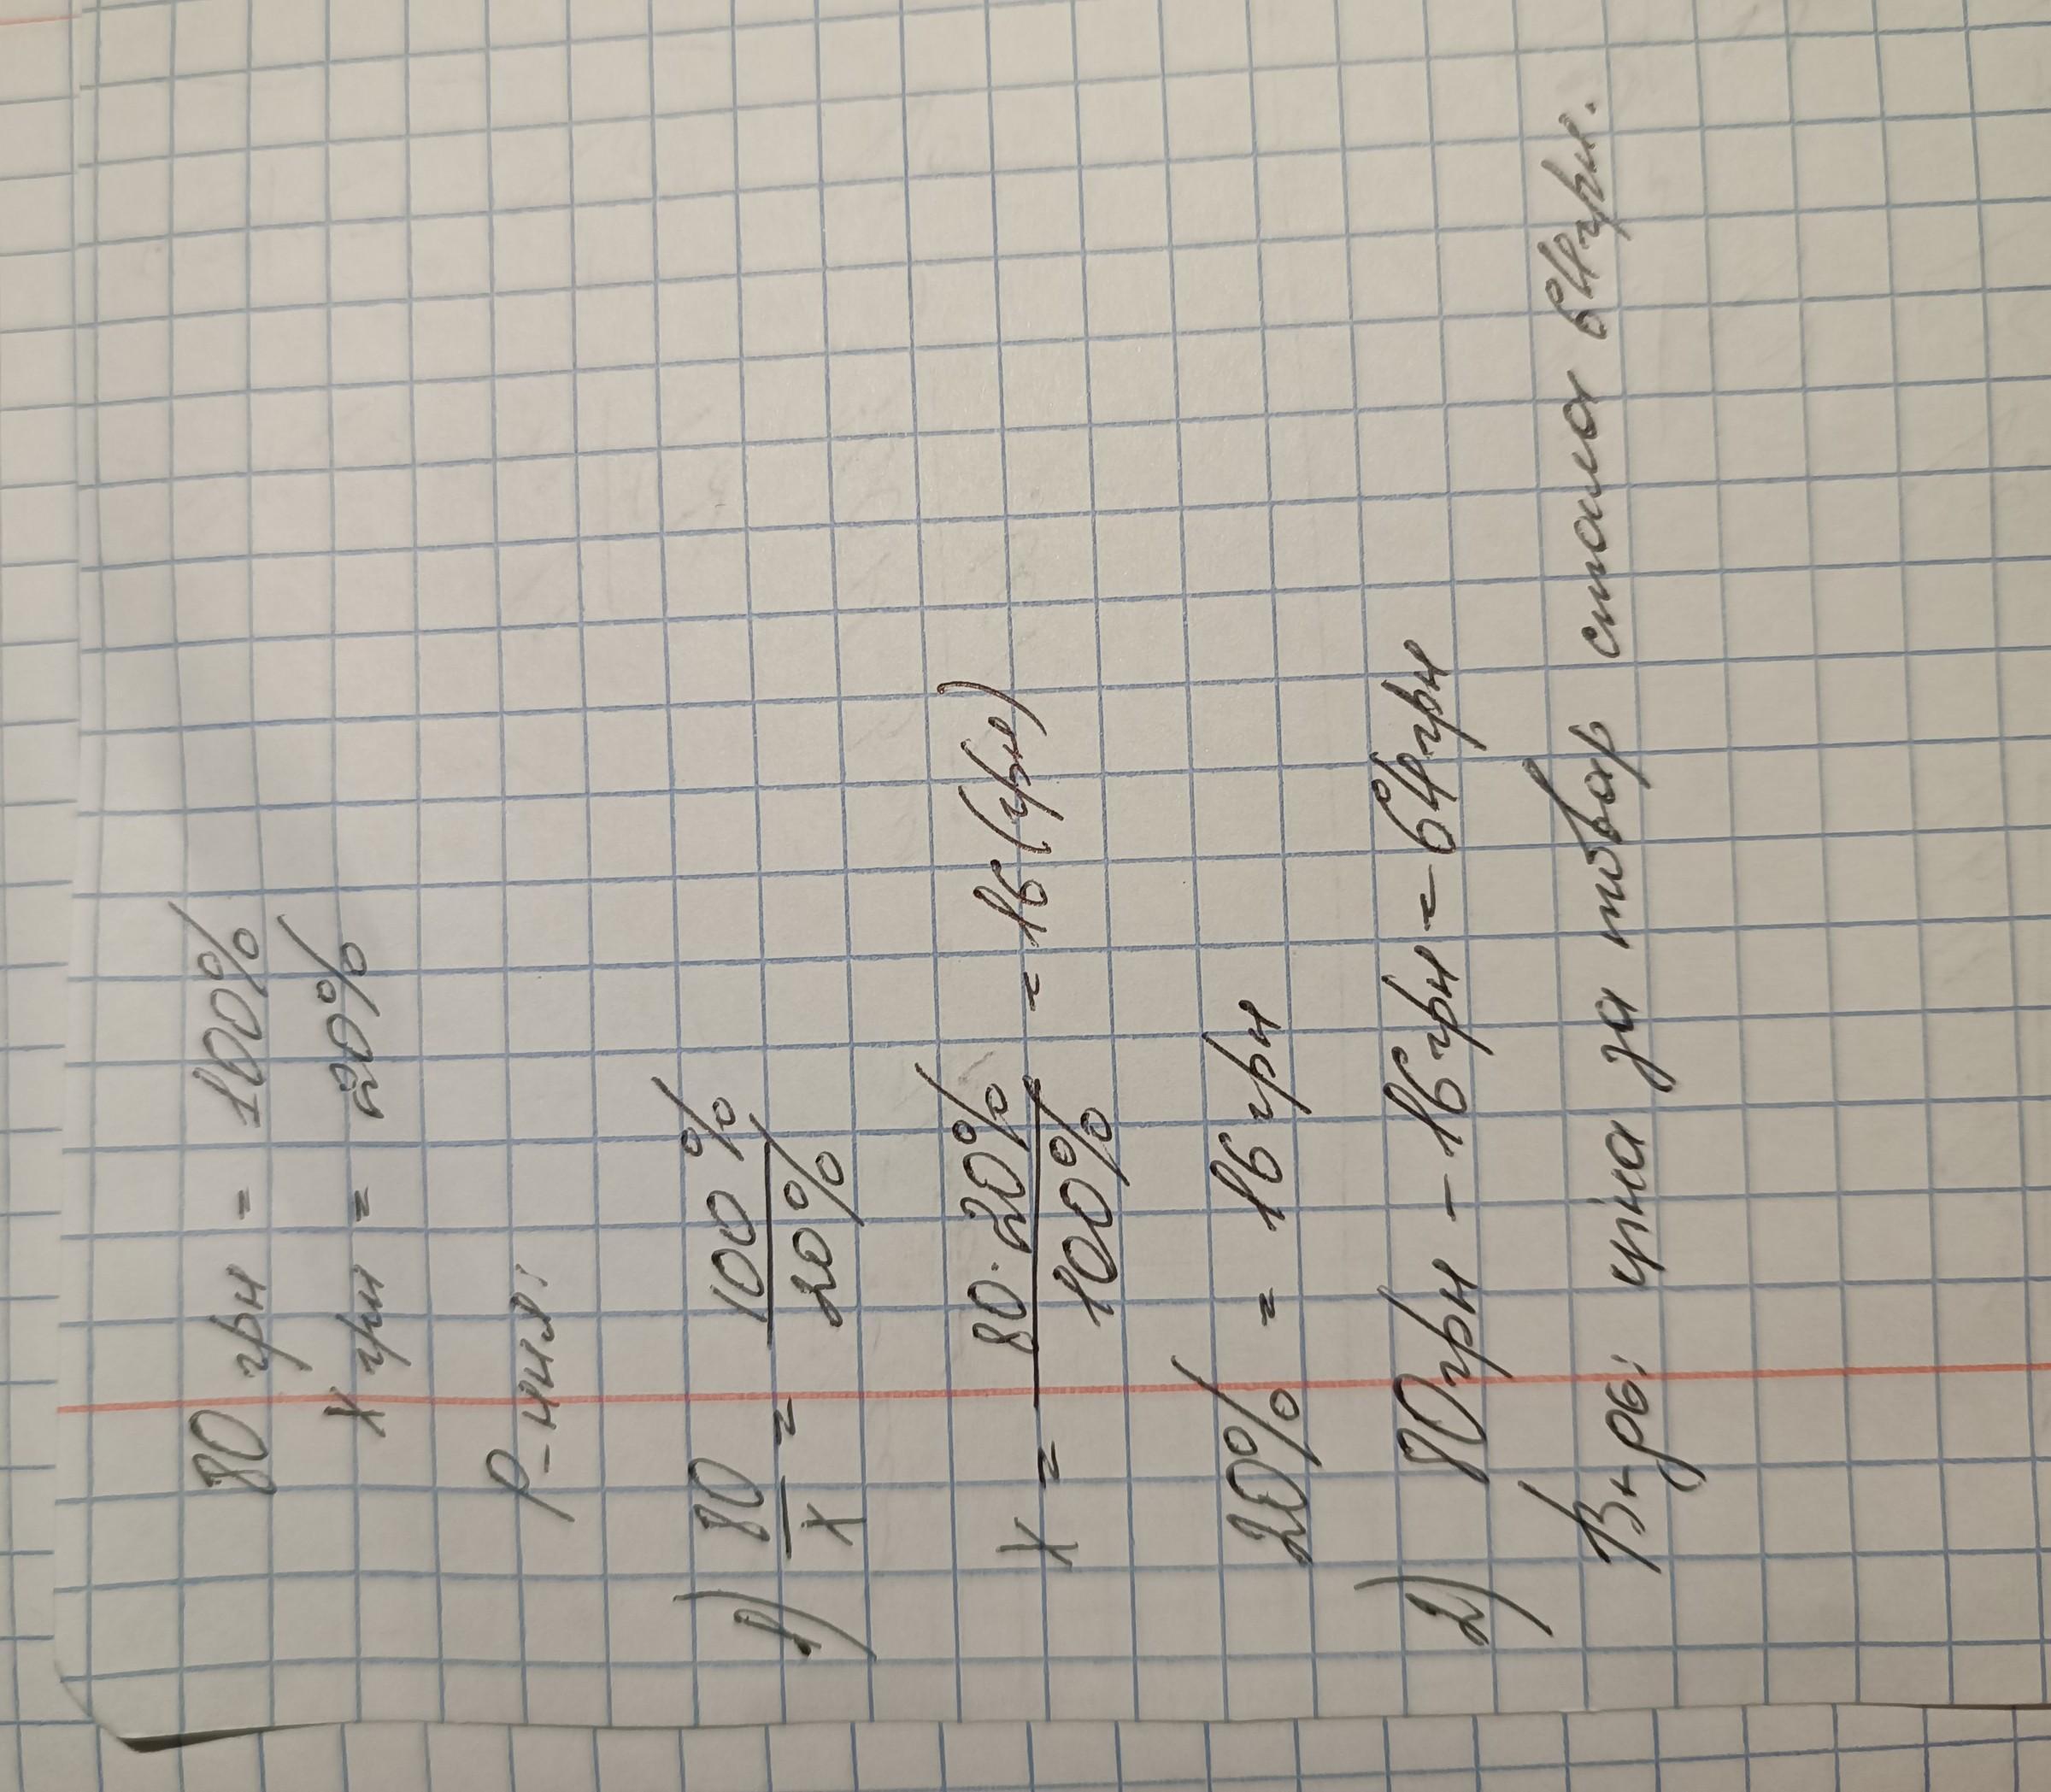 80 грн = 100%
x грн = 20%
Р-ння:
1) 80/x = 100%/20%
x = 80·20%/100% = 16 (грн)
20% = 16 грн
2) 80грн - 16грн = 64грн
В-рь: ціна за товар стала 64грн.